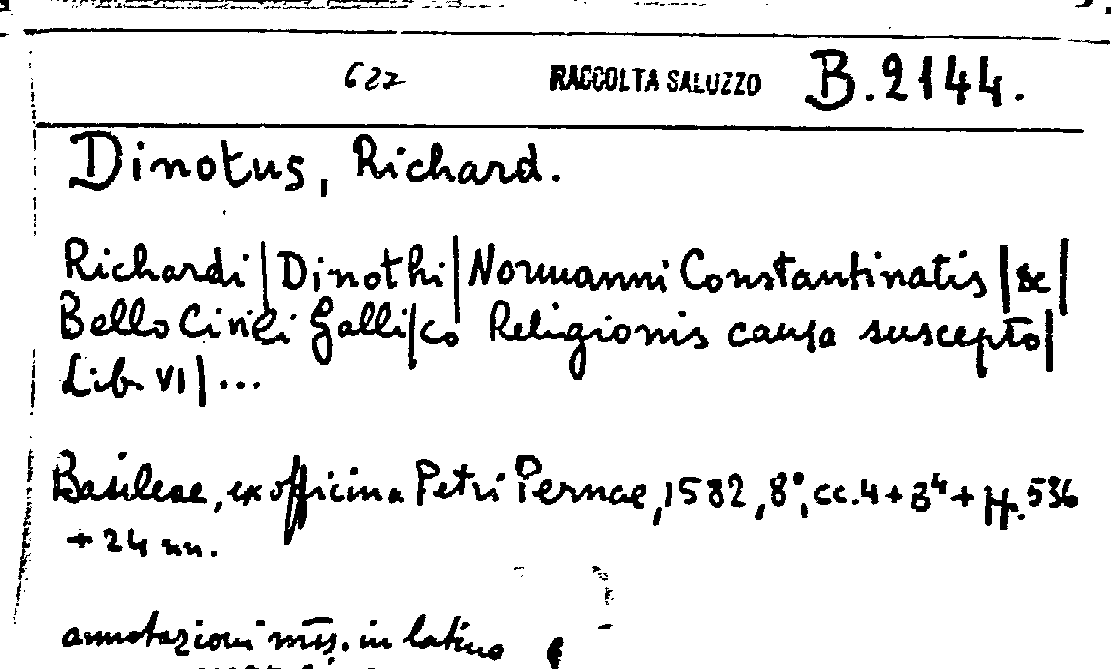 627 RACCOLTA SALUZZO B.2144.
Dinotus, Richard.
Richardi | Dinothi | Normanni Constantinatis | &c |
Bello Civili Galli|co Religionis causa suscepto |
Lib. VI | ...
Basileae, ex officina Petri Pernae, 1582, 8°, cc. 4 + 34 + pp. 536
+ 24 nn.
annotazioni mss. in latino